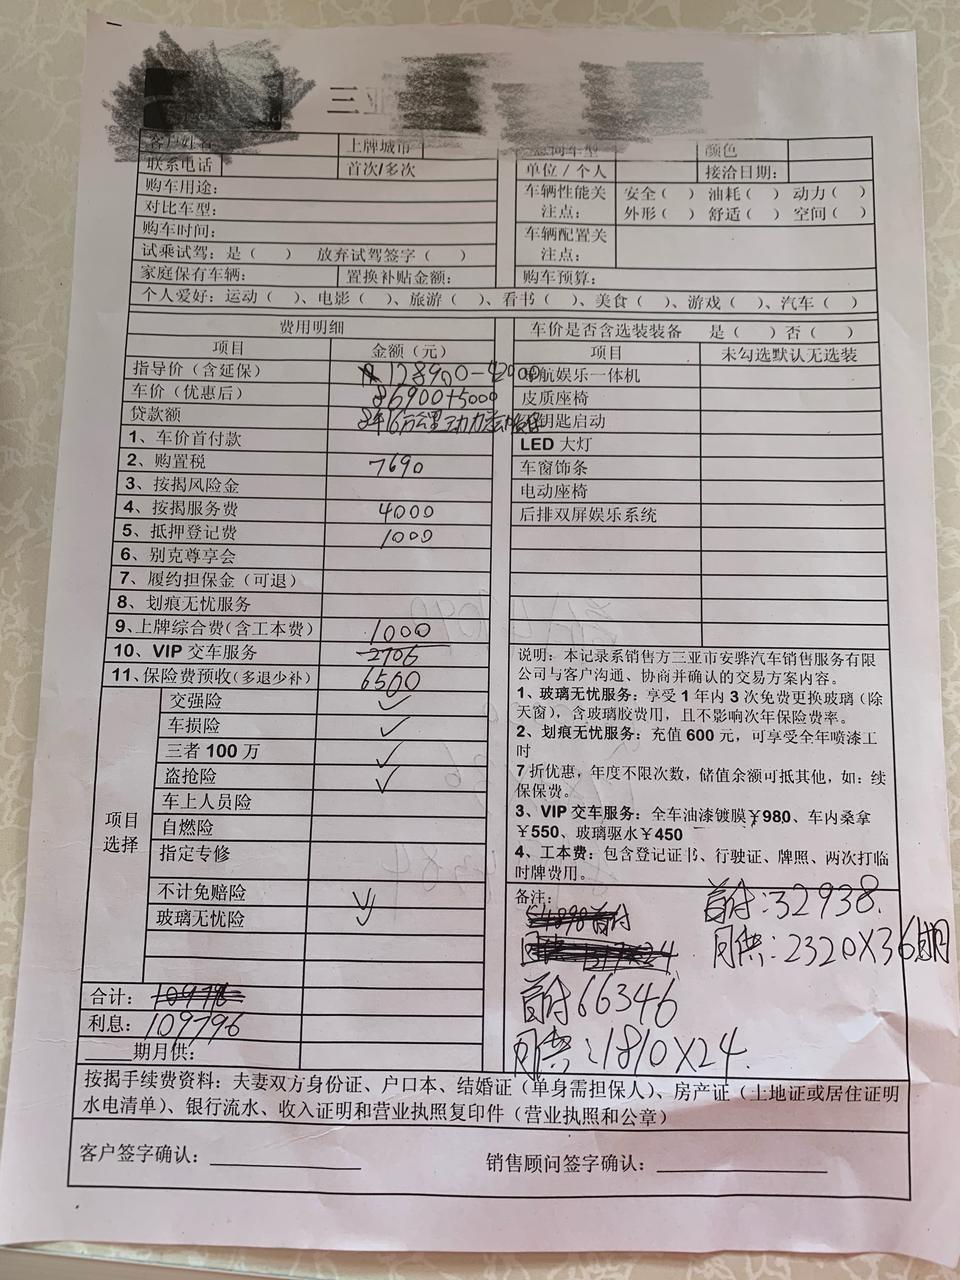 三亚
客户姓名 上牌城市 意向车型 颜色
联系电话 首次/多次 单位/个人 接洽日期：
购车用途： 车辆性能关注点： 安全（ ） 油耗（ ） 动力（ ）
对比车型： 外形（ ） 舒适（ ） 空间（ ）
购车时间： 车辆配置关注点：
试乘试驾：是（ ） 放弃试驾签字（ ）
家庭保有车辆： 置换补贴金额： 购车预算：
个人爱好：运动（ ）、电影（ ）、旅游（ ）、看书（ ）、美食（ ）、游戏（ ）、汽车（ ）
费用明细 车价是否含选装装备 是（ ）否（ ）
项目 金额（元） 项目 未勾选默认无选装
指导价（含延保） 128900-42000 导航娱乐一体机
车价（优惠后） 86900+5000 皮质座椅
贷款额 8年16万公里动力 钥匙启动
1、车价首付款 LED 大灯
2、购置税 7690 车窗饰条
3、按揭风险金 电动座椅
4、按揭服务费 4000 后排双屏娱乐系统
5、抵押登记费 1000
6、别克尊享会
7、履约担保金（可退）
8、划痕无忧服务
9、上牌综合费（含工本费） 1000
10、VIP 交车服务 2706
11、保险费预收（多退少补） 6500
项目选择
交强险 ✓
车损险 ✓
三者 100 万 ✓
盗抢险 ✓
车上人员险
自燃险
指定专修
不计免赔险 ✓
玻璃无忧险 ✓
合计： 109796
利息： 109796
期月供：
说明：本记录系销售方三亚市安骅汽车销售服务有限
公司与客户沟通、协商并确认的交易方案内容。
1、玻璃无忧服务：享受 1 年内 3 次免费更换玻璃（除
天窗），含玻璃胶费用，且不影响次年保险费率。
2、划痕无忧服务：充值 600 元，可享受全年喷漆工
时
7 折优惠，年度不限次数，储值余额可抵其他，如：续
保保费。
3、VIP 交车服务：全车油漆镀膜￥980、车内桑拿
￥550、玻璃驱水￥450
4、工本费：包含登记证书、行驶证、牌照、两次打临
时牌费用。
备注：
首付：32938.
月供：2320X36期
首付66346
月供：1810X24.
按揭手续费资料：夫妻双方身份证、户口本、结婚证（单身需担保人）、房产证（土地证或居住证明
水电清单）、银行流水、收入证明和营业执照复印件（营业执照和公章）
客户签字确认： 销售顾问签字确认：